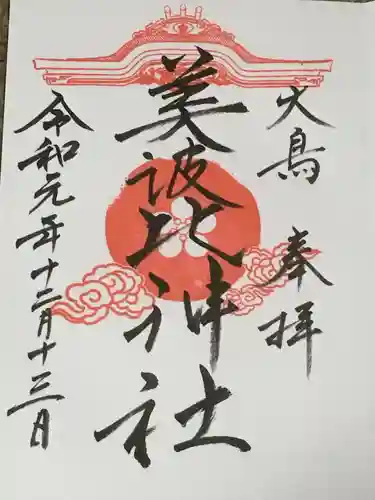 大鳥　奉拝
美波比神社
令和元年十二月十三日